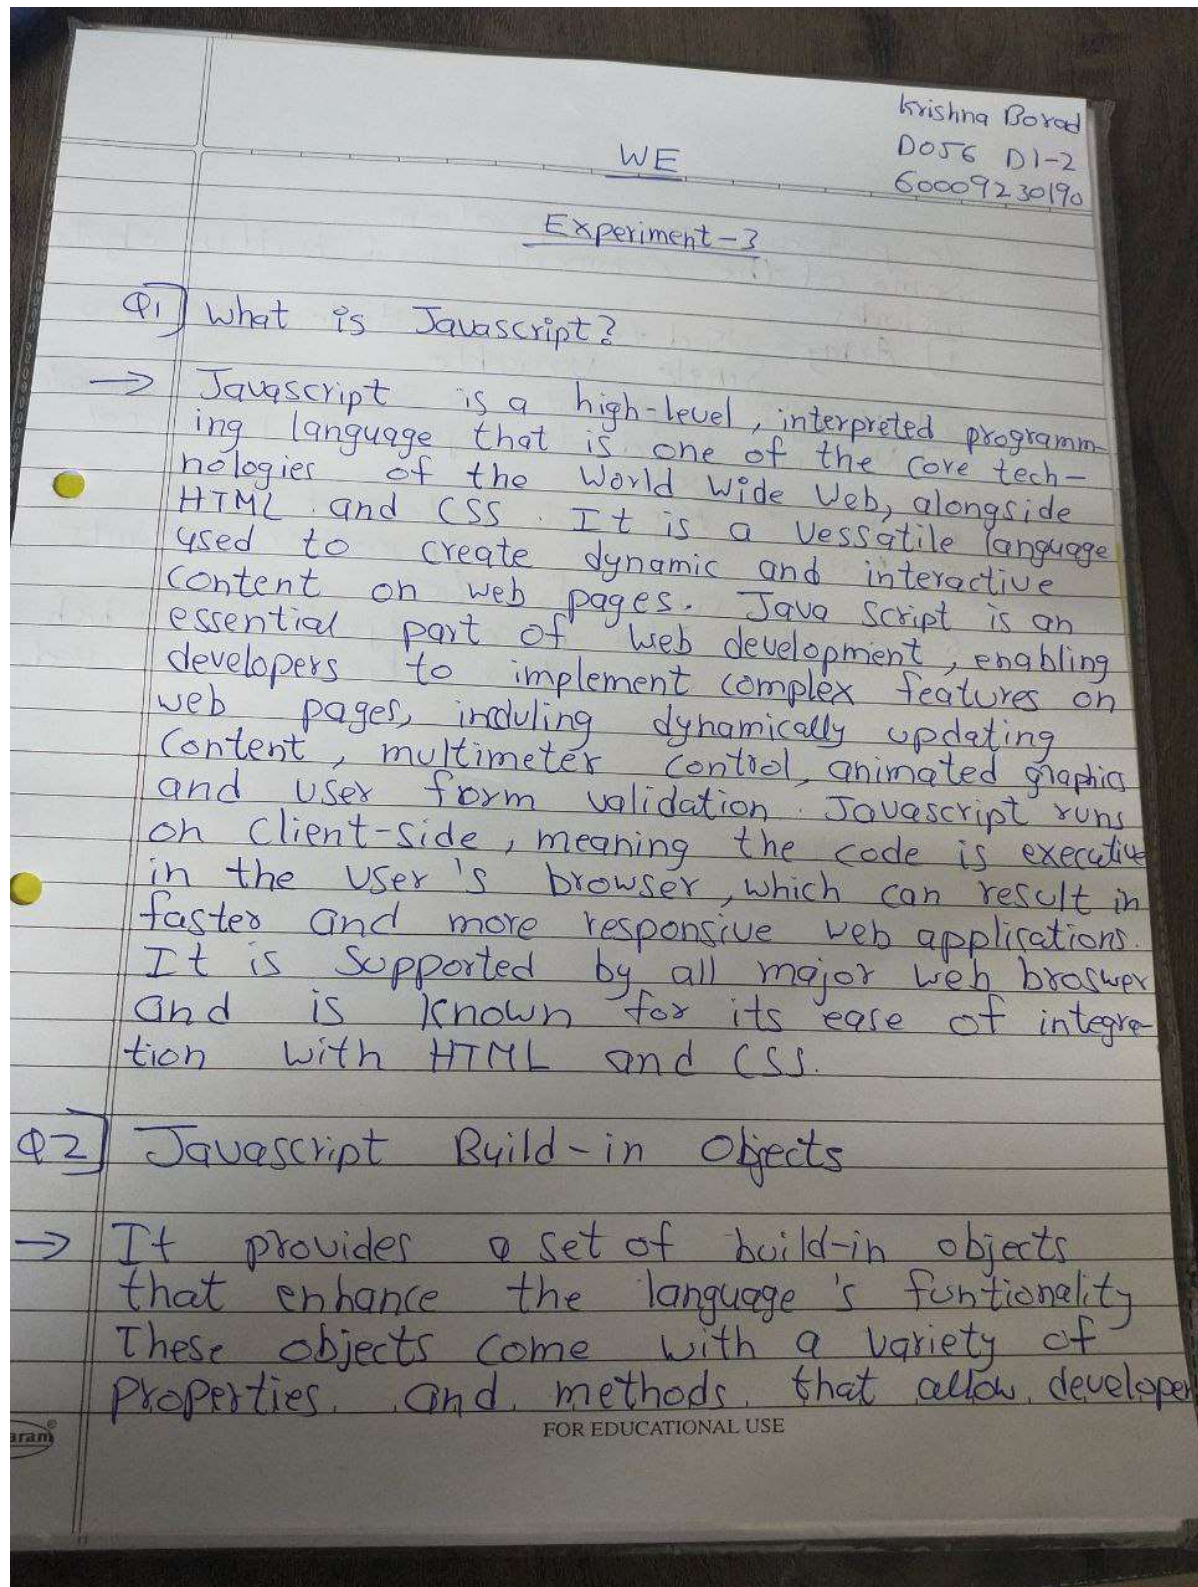 Krishna Borad
D056 D1-2
60009230190
WE
Experiment-3
Q1] What is Javascript?
→ Javascript is a high-level, interpreted programm-
ing language that is one of the core tech-
nologies of the World Wide Web, alongside
HTML and CSS. It is a vessatile language
used to create dynamic and interactive
content on web pages. Java script is an
essential part of web development, enabling
developers to implement complex features on
web pages, induling dynamically updating
content, multimeter control, animated graphics
and user form validation. Javascript runs
on client-side, meaning the code is executive
in the user's browser, which can result in
faster and more responsive web applications.
It is supported by all major web broswer
and is known for its ease of integra-
tion with HTML and CSS.
Q2] Javascript Build-in Objects
→ It provides a set of build-in objects
that enhance the language's funtionality
These objects come with a variety of
properties and methods that allow developer
aram
FOR EDUCATIONAL USE